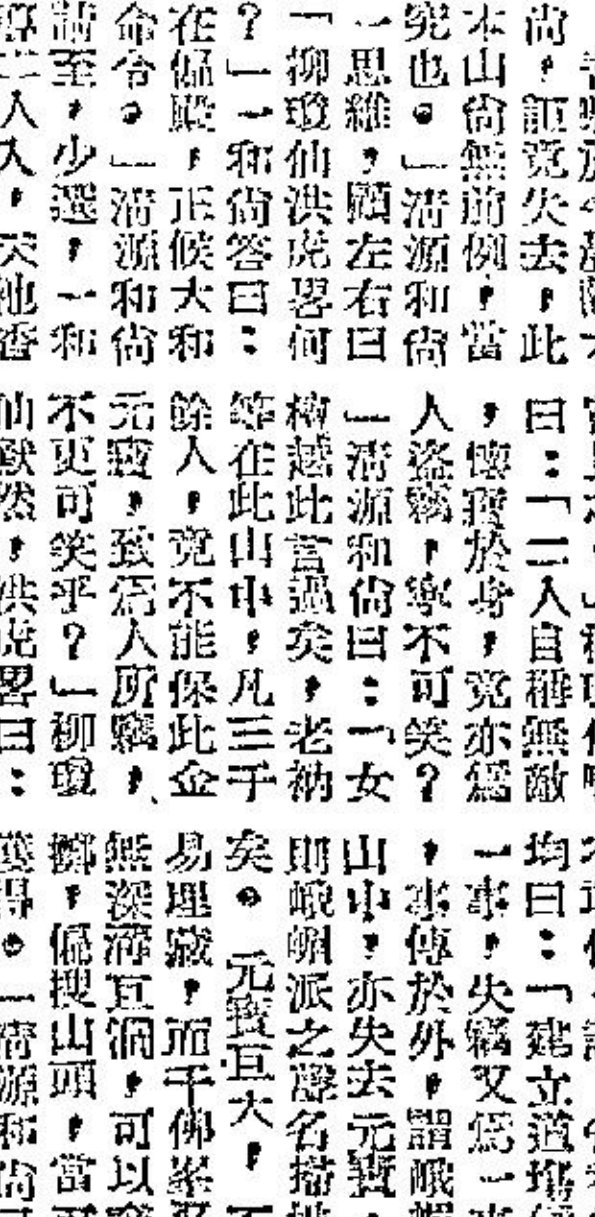 尚，詎竟失去，此
本山尚無前例，當
究也。」清源和尚
一思維，顧左右曰
「柳瓊仙洪虎畧何
？」一和尚答曰：
在偏殿，正候大和
命令。」清源和尚
請至，少選，一和
導二人入，天池
曰：「二人自稱無敵
，懷寶於身，竟亦為
人盜竊，寧不可笑？
」清源和尚曰：「女
檀越此言過矣，老衲
等在此山中，凡三千
餘人，竟不能保此金
元寶，致為人所竊，
不更可笑乎？」柳瓊
仙默然，洪虎畧曰：
均曰：「建立道場
一事，失竊又為一
，事傳於外，謂峨
山中，亦失去元寶
則峨嵋派之聲名掃
矣。元寶亘大，
易埋藏，而千佛峯
無深潭亘洞，可以
擲，偏搜山頭，當
獲得。」清源和尚